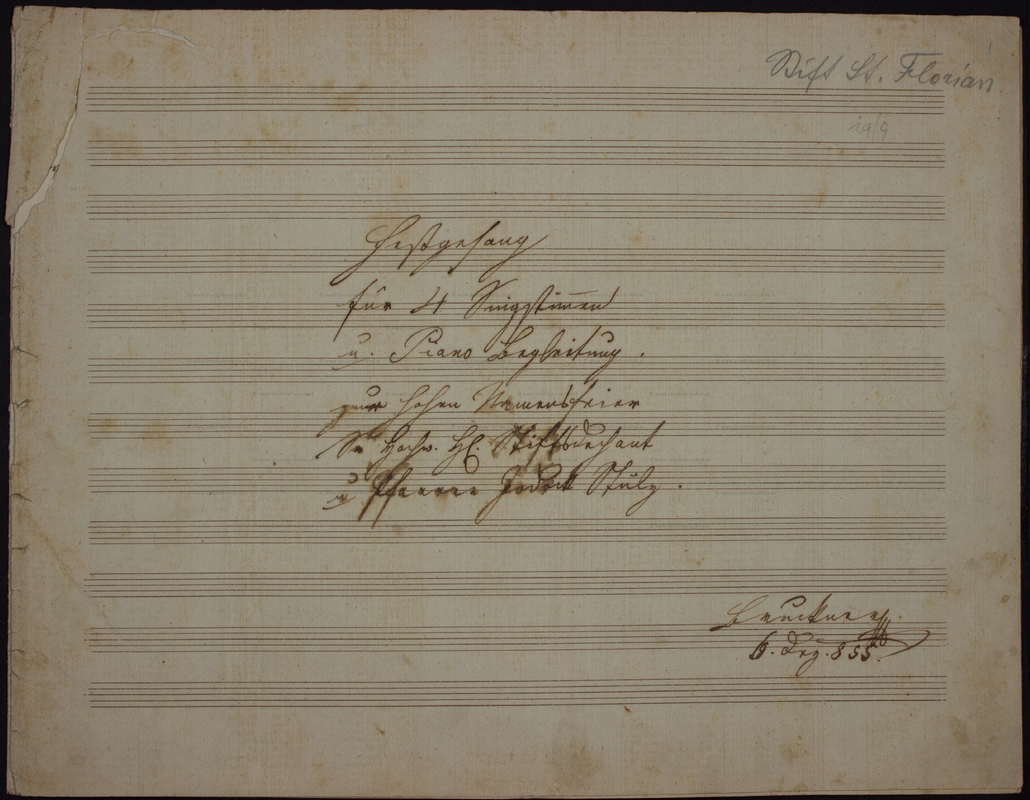 Stift St. Florian
19/9
Festgesang
für 4 Singstimmen
u. Piano Begleitung.
zur hohen Namensfeier
Sr Hochw. H. Stiftsdechant
u Pfarrer Jodok Stülz.
Bruckner
6. Dez. 855